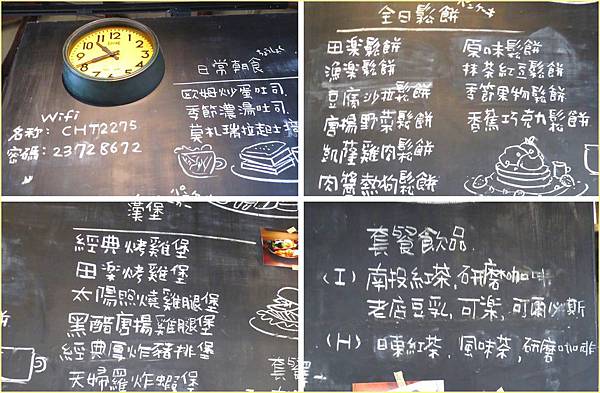 日常朝食
歐姆炒蛋吐司
季節濃湯吐司
莫札瑞拉起士
Wifi
名稱: CHT2275
密碼: 23728672
全日鬆餅
田楽鬆餅
漁楽鬆餅
豆腐沙拉鬆餅
唐揚野菜鬆餅
凱薩雞肉鬆餅
肉醬熱狗鬆餅
原味鬆餅
抹茶紅豆鬆餅
季節果物鬆餅
香蕉巧克力鬆餅
漢堡
經典烤雞堡
田楽烤雞堡
太陽悶燒雞腿堡
黑醋唐揚雞腿堡
經典厚炸豬排堡
天婦羅炸蝦堡
套餐
套餐飲品
(I) 南投紅茶,研磨咖啡
老店豆乳,可楽,可爾必斯
(H) 日東紅茶,風味茶,研磨咖啡